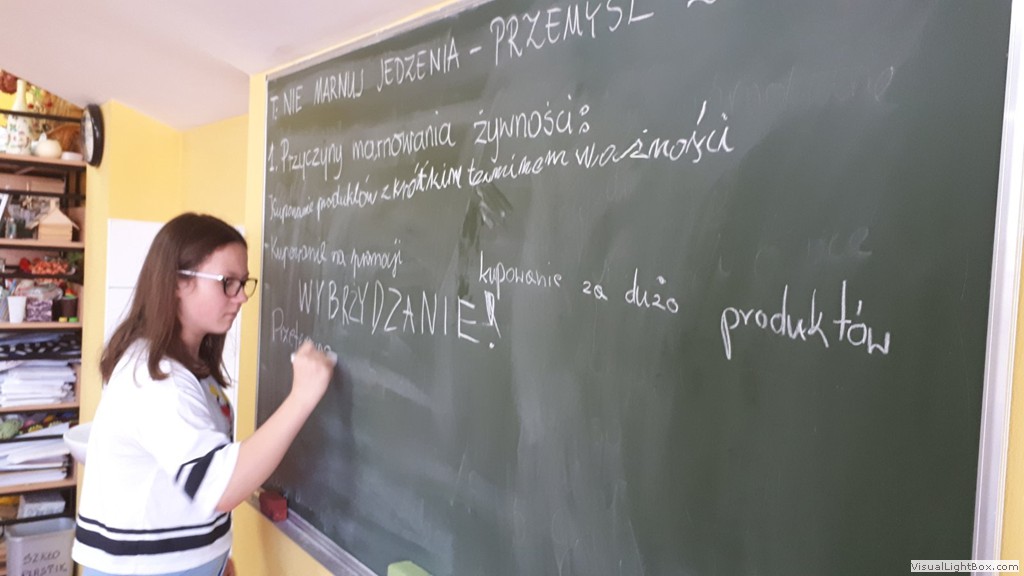 T: NIE MARNUJ JEDZENIA - PRZEMYŚL
1. Przyczyny marnowania żywności:
Kupowanie produktów z krótkim terminem ważności
- Kupowanie na promocji
kupowanie za dużo produktów
WYBRZYDZANIE!
SZKŁO
PLASTIK
VisualLightBox.com